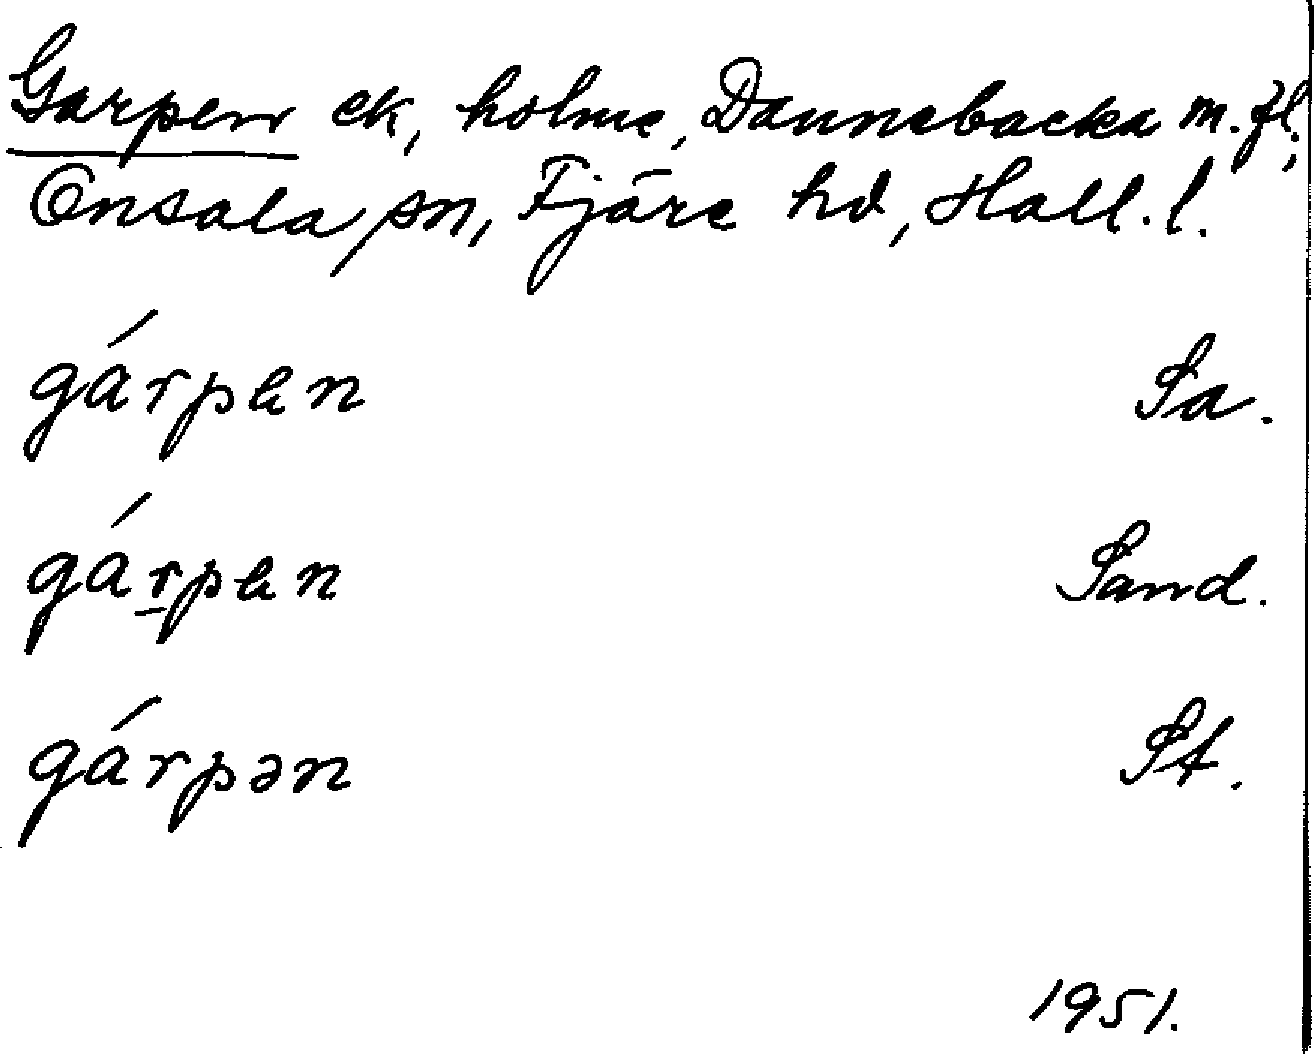 Garpen ek, holme, Dannebacka m. fl.,
Onsala sn, Fjäre hd, Hall. l.
gárpen Sa.
gárpen Sand.
gárpən St.
1951.